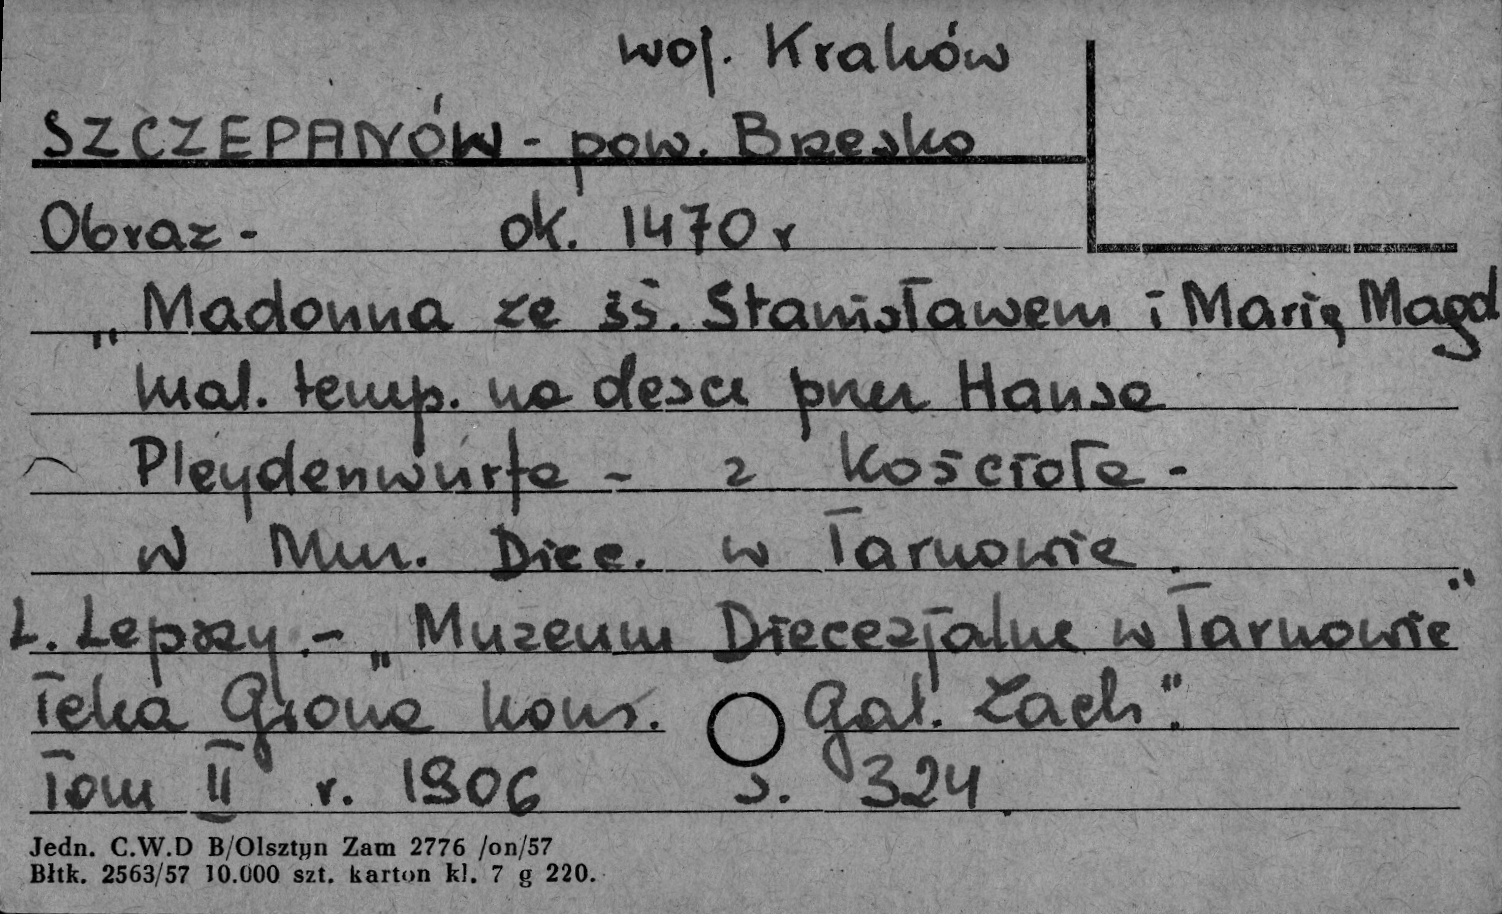 woj. Kraków
SZCZEPANÓW - pow. Brzesko
Obraz - ok. 1470 r
„Madonna ze śś. Stanisławem i Marią Magd
mal. temp. na desce przez Hansa
Pleydenwurfa - z kościoła -
w Muz. Diec. w Tarnowie.
L. Lepszy. - „Muzeum Diecezjalne w Tarnowie"
Teka Grona kons. Gal. Zach".
Tom II r. 1906 s. 324.
Jedn. C.W.D B/Olsztyn Zam 2776 /on/57
Błtk. 2563/57 10.000 szt. karton kl. 7 g 220.